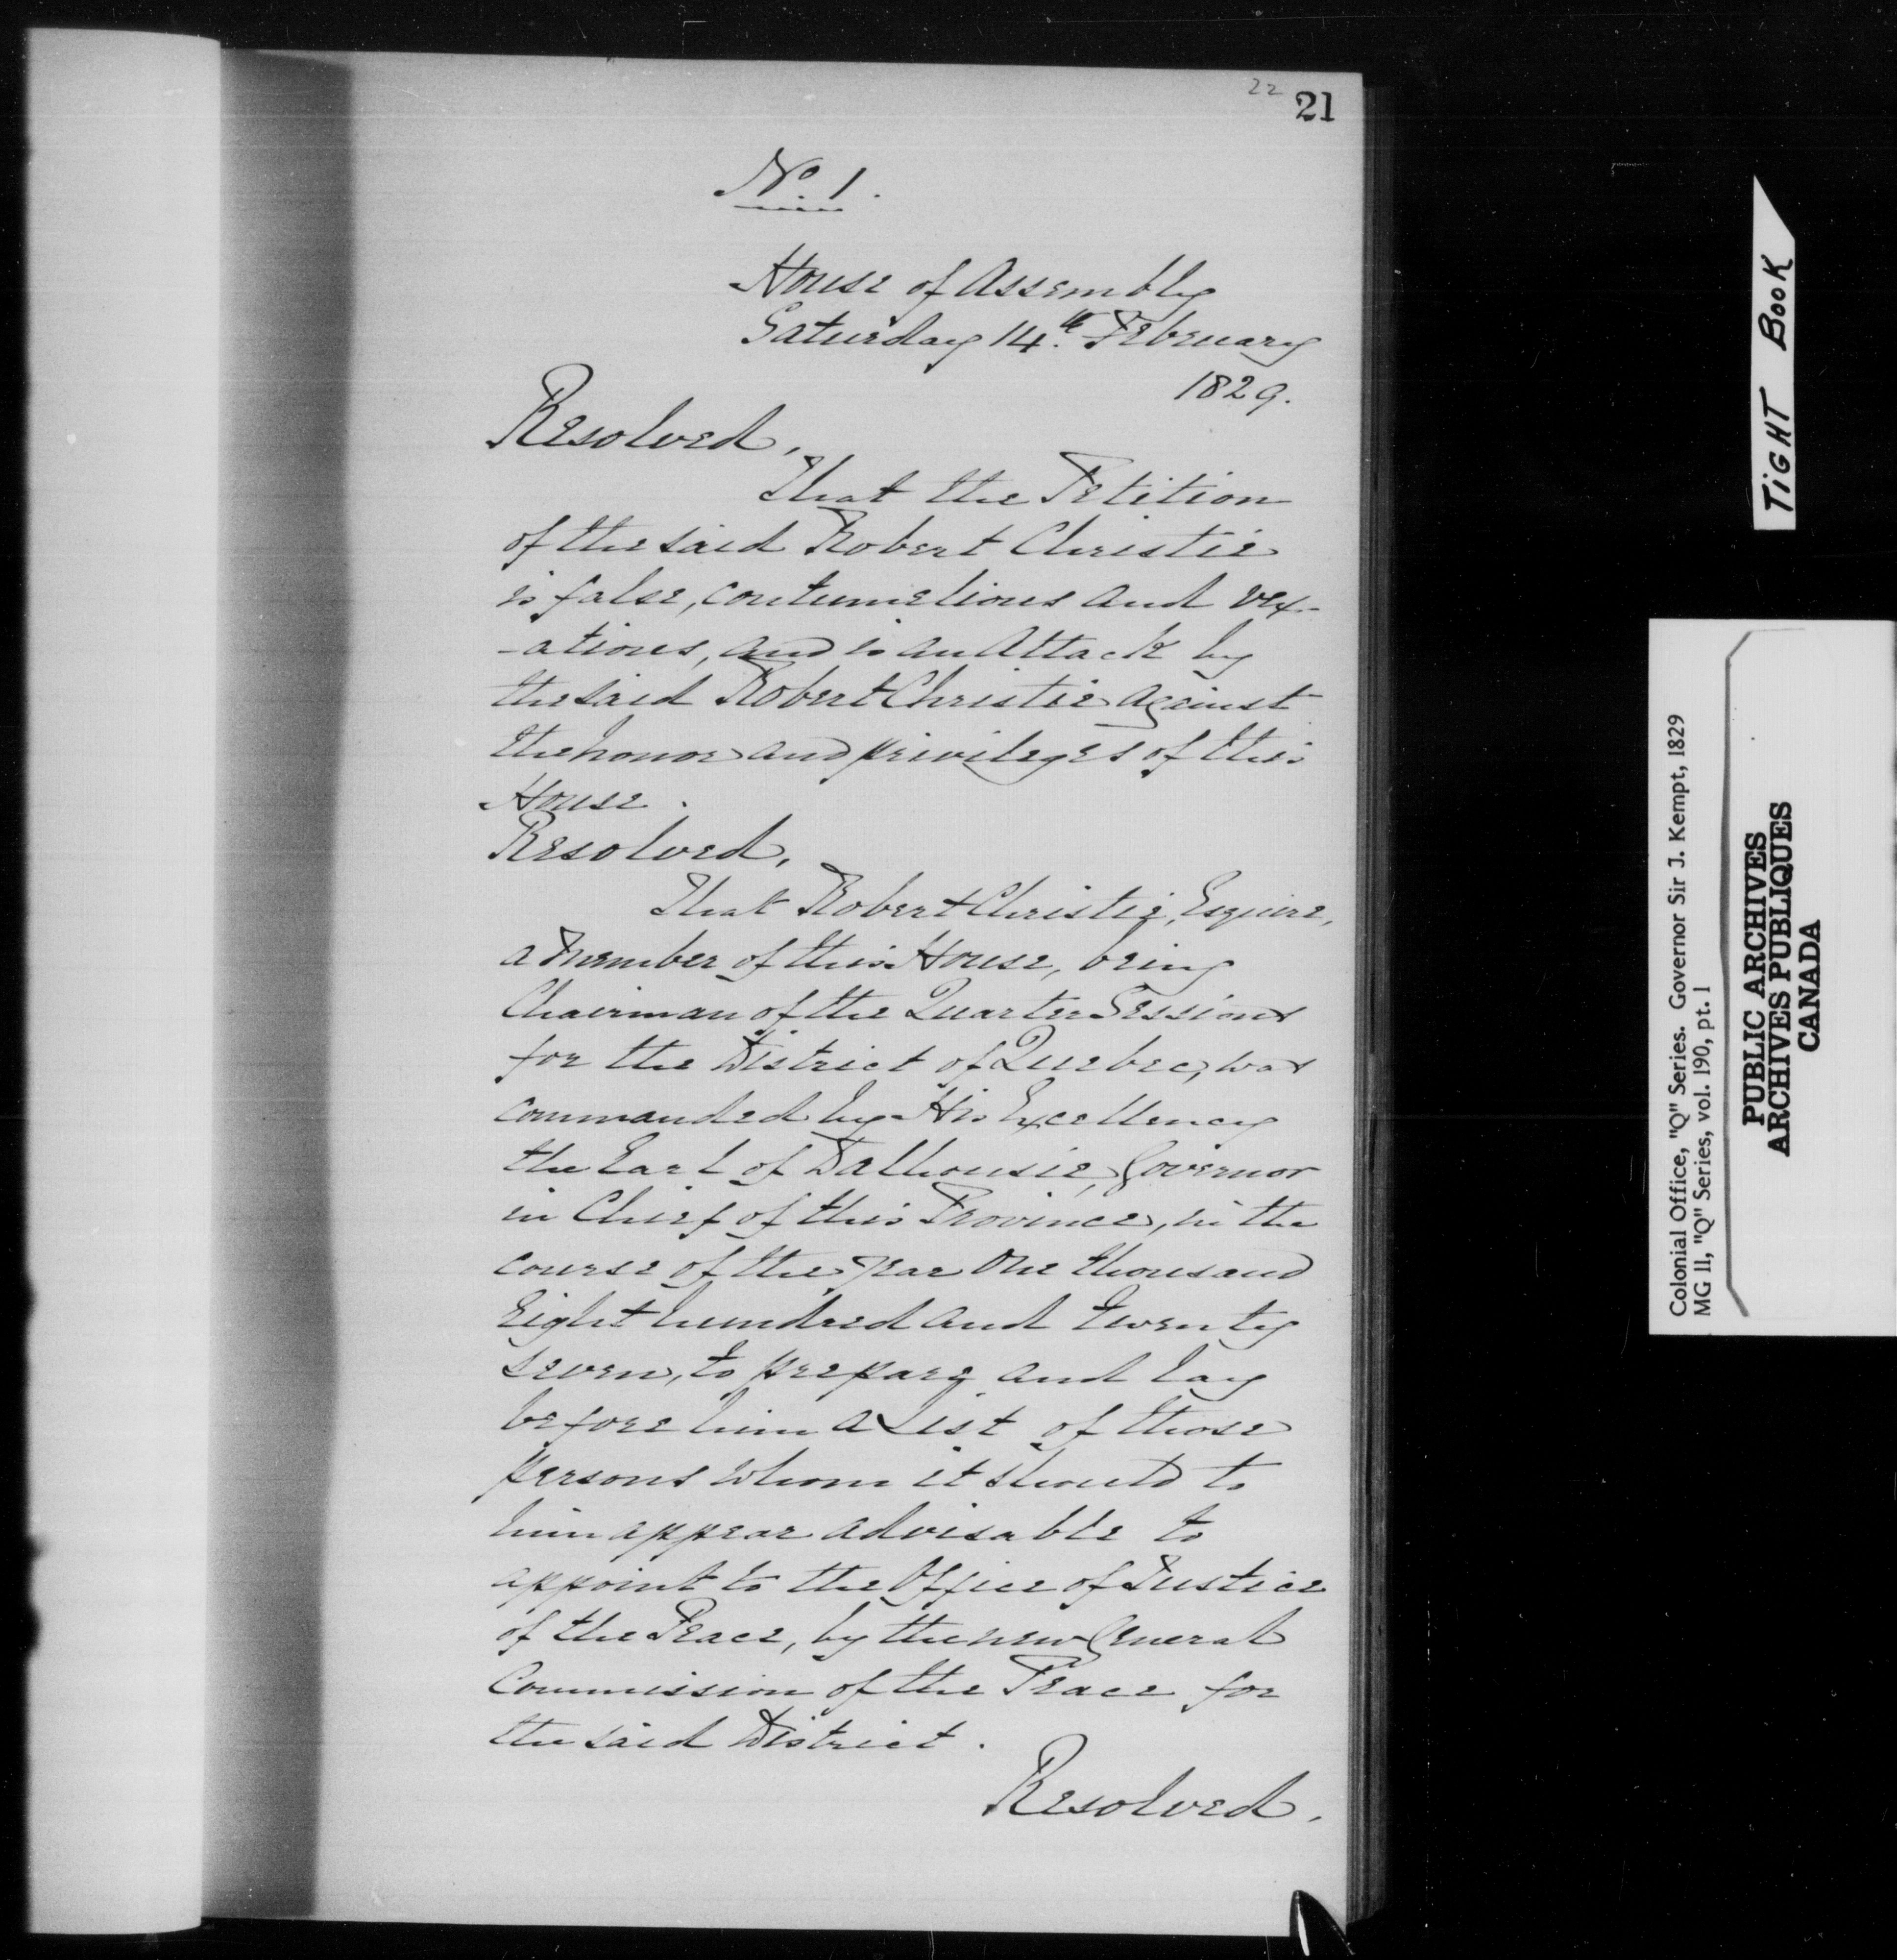 22 21
No. 1.
House of Assembly
Saturday 14th February
1829.
Resolved,
That the Petition
of the said Robert Christie
is false, contumelious and vex-
-atious, and is an Attack by
the said Robert Christie against
the honor and privileges of this
House.
Resolved,
That Robert Christie, Esquire,
a Member of this House, being
Chairman of the Quarter Sessions
for the District of Quebec, was
commanded by His Excellency
the Earl of Dalhousie, Governor
in Chief of this Province, in the
course of the year One thousand
Eight hundred and twenty
seven, to prepare and lay
before him a List of those
persons whom it should to
him appear advisable to
appoint to the Office of Justice
of the Peace, by the new General
Commission of the Peace for
the said District.
Resolved,
TIGHT BOOK
Colonial Office, "Q" Series. Governor Sir J. Kempt, 1829
MG 11, "Q" Series, vol. 190, pt. 1
PUBLIC ARCHIVES
ARCHIVES PUBLIQUES
CANADA